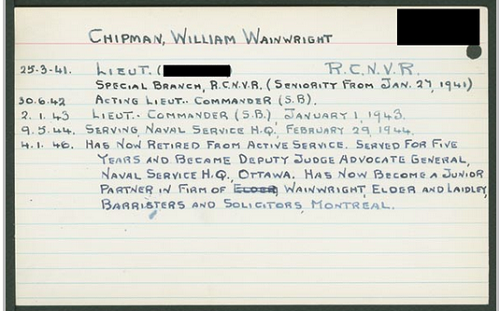 CHIPMAN, WILLIAM WAINWRIGHT
25-3-41. LIEUT. ( R.C.N.V.R.
SPECIAL BRANCH, R.C.N.V.R. (SENIORITY FROM JAN. 27, 1941)
30.6.42 ACTING LIEUT.- COMMANDER (S.B).
2.1.43 LIEUT.- COMMANDER (S.B.), JANUARY 1, 1943.
9.5.44. SERVING, NAVAL SERVICE H.Q., FEBRUARY 29, 1944.
4.1.46. HAS NOW RETIRED FROM ACTIVE SERVICE. SERVED FOR FIVE
YEARS AND BECAME DEPUTY JUDGE ADVOCATE GENERAL,
NAVAL SERVICE H.Q., OTTAWA. HAS NOW BECOME A JUNIOR
PARTNER IN FIRM OF ELDER WAINWRIGHT, ELDER AND LAIDLEY,
BARRISTERS AND SOLICITORS, MONTREAL.